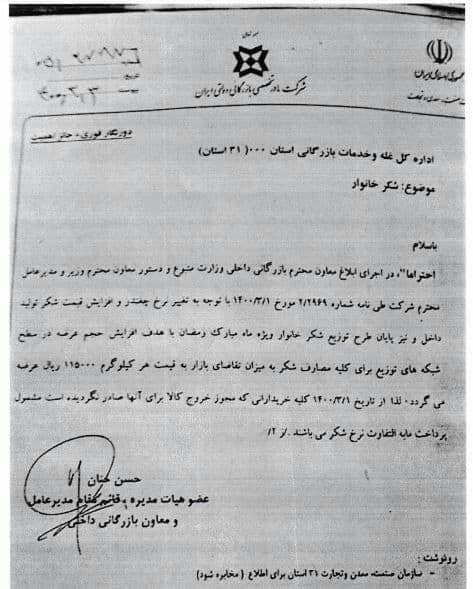 شرکت مادر تخصصی بازرگانی دولتی ایران
دورنگار فوری - حائز اهمیت
اداره کل غله و خدمات بازرگانی استان ۰۰۰( ۳۱ استان)
موضوع: شکر خانوار
باسلام
احتراما"، در اجرای ابلاغ معاون محترم بازرگانی داخلی وزارت متبوع و دستور معاون محترم وزیر و مدیرعامل
محترم شرکت طی نامه شماره ۲/۲۹۶۹ مورخ ۱۴۰۰/۳/۱ با توجه به تغییر نرخ چغندر و افزایش قیمت شکر تولید
داخل و نیز پایان طرح توزیع شکر خانوار ویژه ماه مبارک رمضان با هدف افزایش حجم عرضه در سطح
شبکه های توزیع برای کلیه مصارف شکر به میزان تقاضای بازار به قیمت هر کیلوگرم ۱۱۵۰۰۰ ریال عرضه
می گردد، لذا از تاریخ ۱۴۰۰/۳/۱ کلیه خریدارانی که مجوز خروج کالا برای آنها صادر نگردیده است مشمول
پرداخت مابه التفاوت نرخ شکر می باشند ./ز ۲/
حسن حنان
عضو هیات مدیره ، قائم مقام مدیرعامل
و معاون بازرگانی داخلی
رونوشت :
- سازمان صنعت، معدن وتجارت ۳۱ استان برای اطلاع ( مخابره شود)